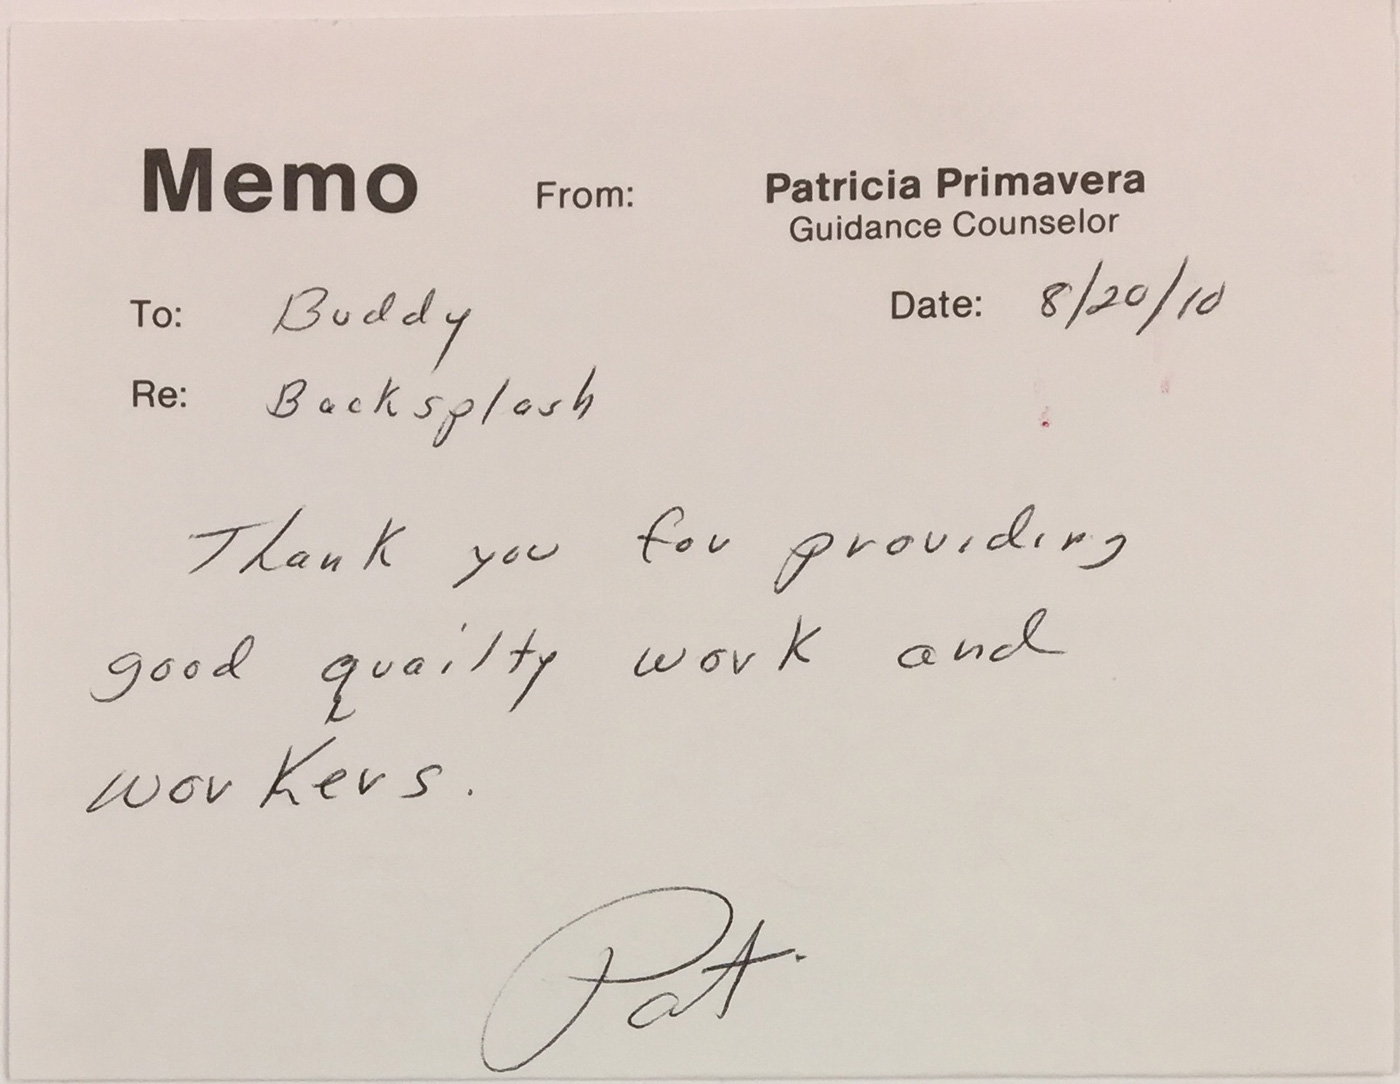 Memo From: Patricia Primavera
Guidance Counselor
To: Buddy Date: 8/20/10
Re: Backsplash
Thank you for providing
good quailty work and
workers.
Pat.